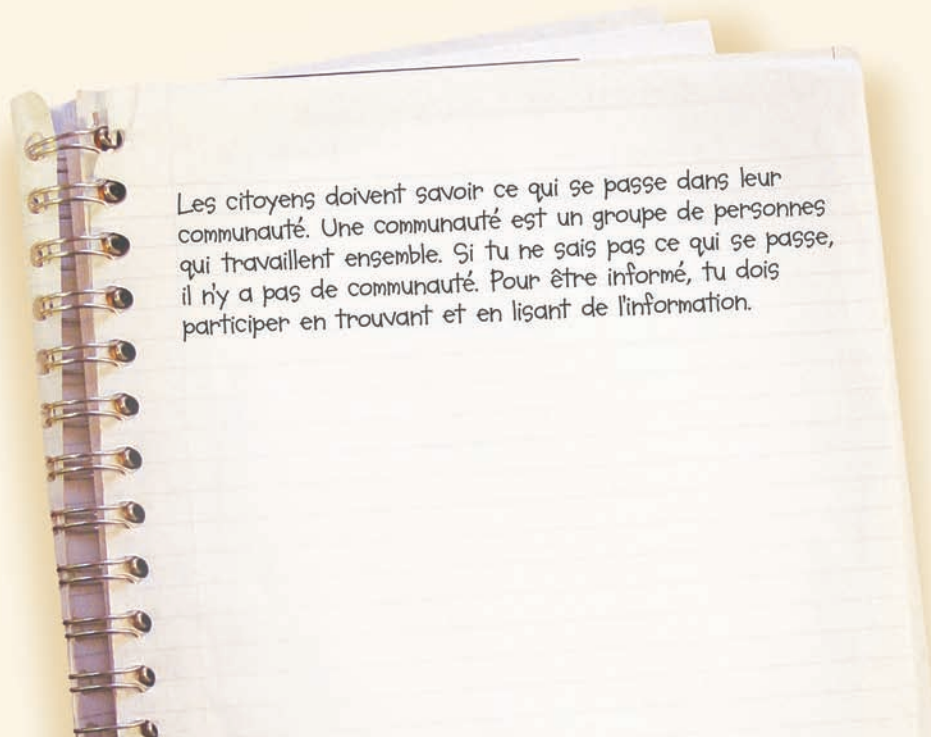 Les citoyens doivent savoir ce qui se passe dans leur
communauté. Une communauté est un groupe de personnes
qui travaillent ensemble. Si tu ne sais pas ce qui se passe,
il n'y a pas de communauté. Pour être informé, tu dois
participer en trouvant et en lisant de l'information.